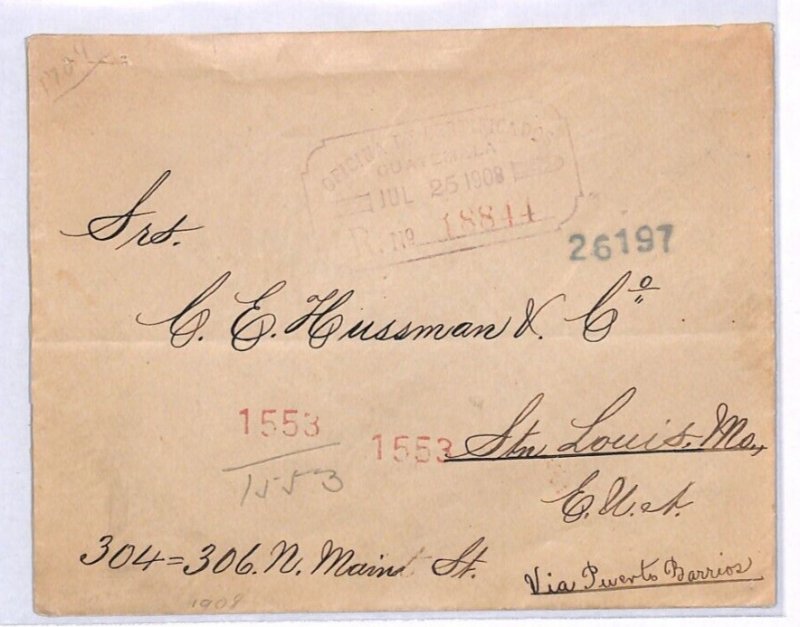 OFICINA DE CERTIFICADOS
GUATEMALA
JUL 25 1908
R. No 18844
Srs.
26197
C. E. Hussman & Cº
1553
1553
Stn Louis, Mo,
1553
E.U.A.
304=306. N. Main St.
Via Puerto Barrios
1908